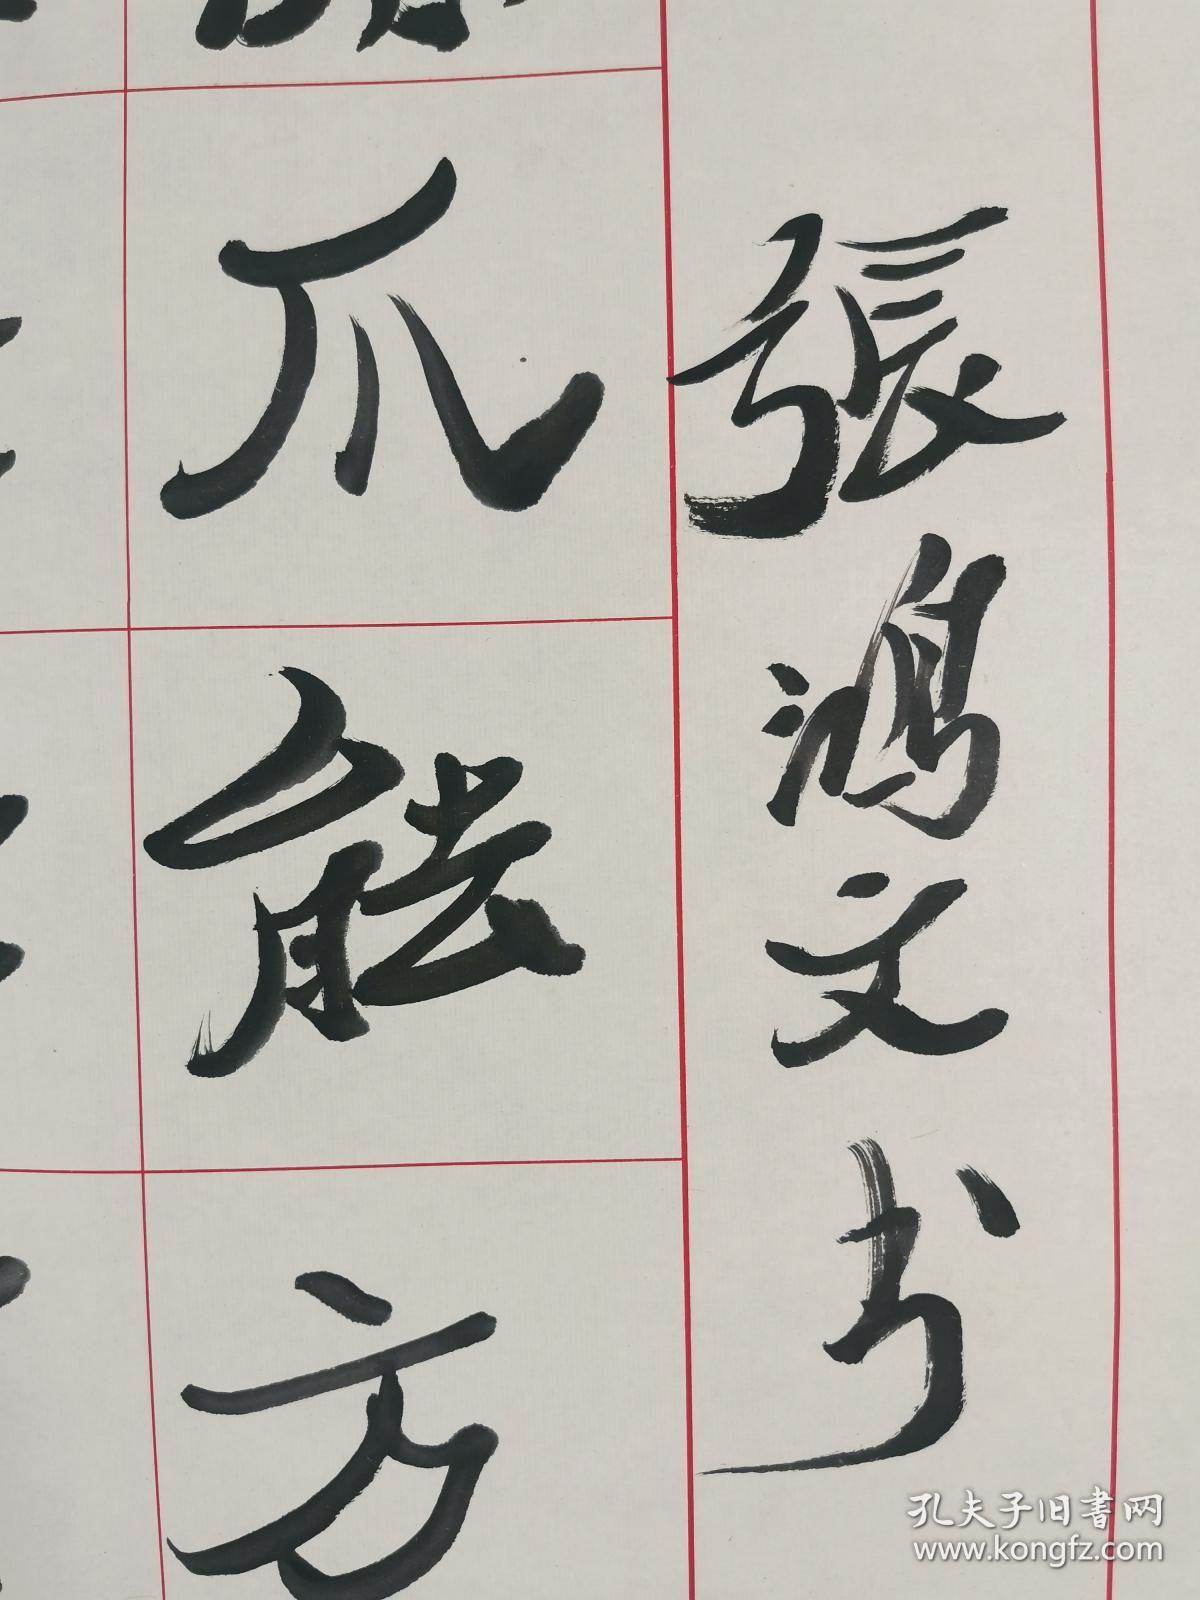 張鴻文书
爪能方
孔夫子旧書网
www.kongfz.com